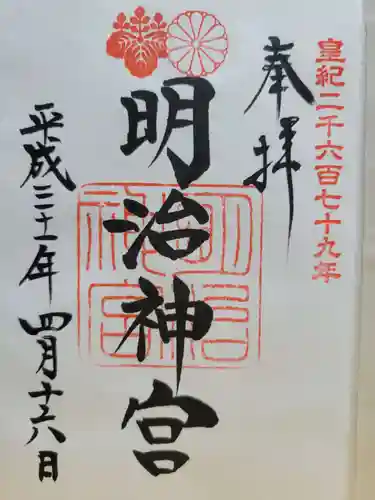 皇紀二千六百七十九年
奉拝
明治神宮
明治神宮
平成三十一年四月十六日